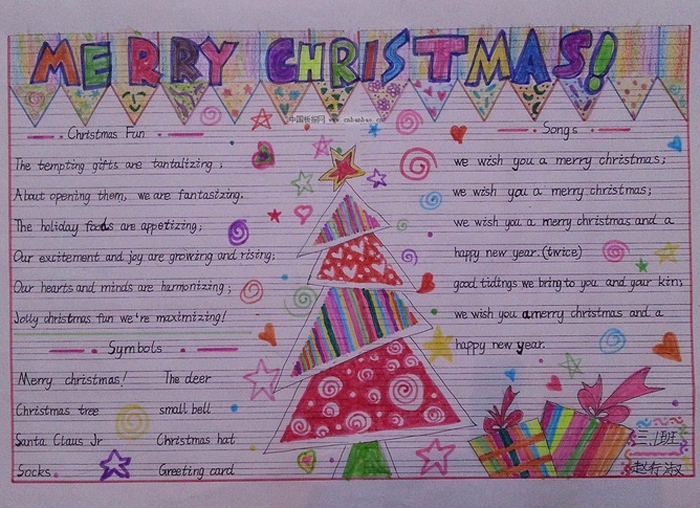 MERRY CHRISTMAS!
中国板报网 www.cnbanbao.cn
Christmas Fun
The tempting gifts are tantalizing ;
About opening them, we are fantasizing.
The holiday foods are appetizing;
Our excitement and joy are growing and rising;
Our hearts and minds are harmonizing ;
Jolly christmas fun we're maximizing!
Symbols
Merry christmas! The deer
Christmas tree small bell
Santa Claus Jr Christmas hat
Socks. Greeting card
Songs
we wish you a merry christmas;
we wish you a merry christmas;
we wish you a merry christmas and a
happy new year.(twice)
good tidings we bring to you and your kin;
we wish you a merry christmas and a
happy new year.
三.1班
赵行淑